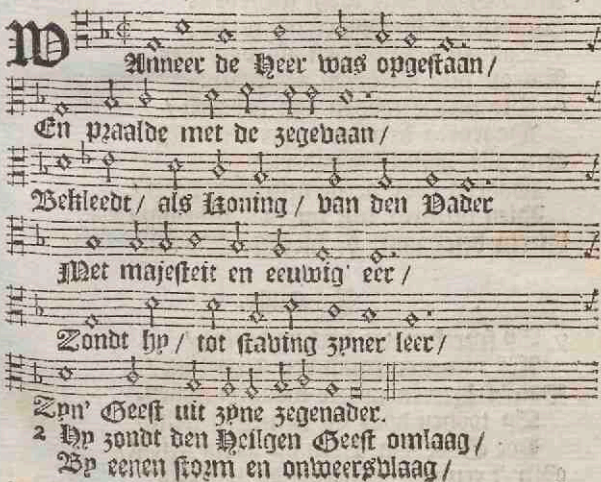 WAnneer de Heer was opgestaan/
En praalde met de zegevaan/
Bekleedt/ als Koning/ van den Vader
Met majesteit en eeuwig' eer/
Zondt hy/ tot staving zyner leer/
Zyn' Geest uit zyne zegenader.
2 Hy zondt den Heilgen Geest omlaag/
By eenen storm en onweersvlaag/